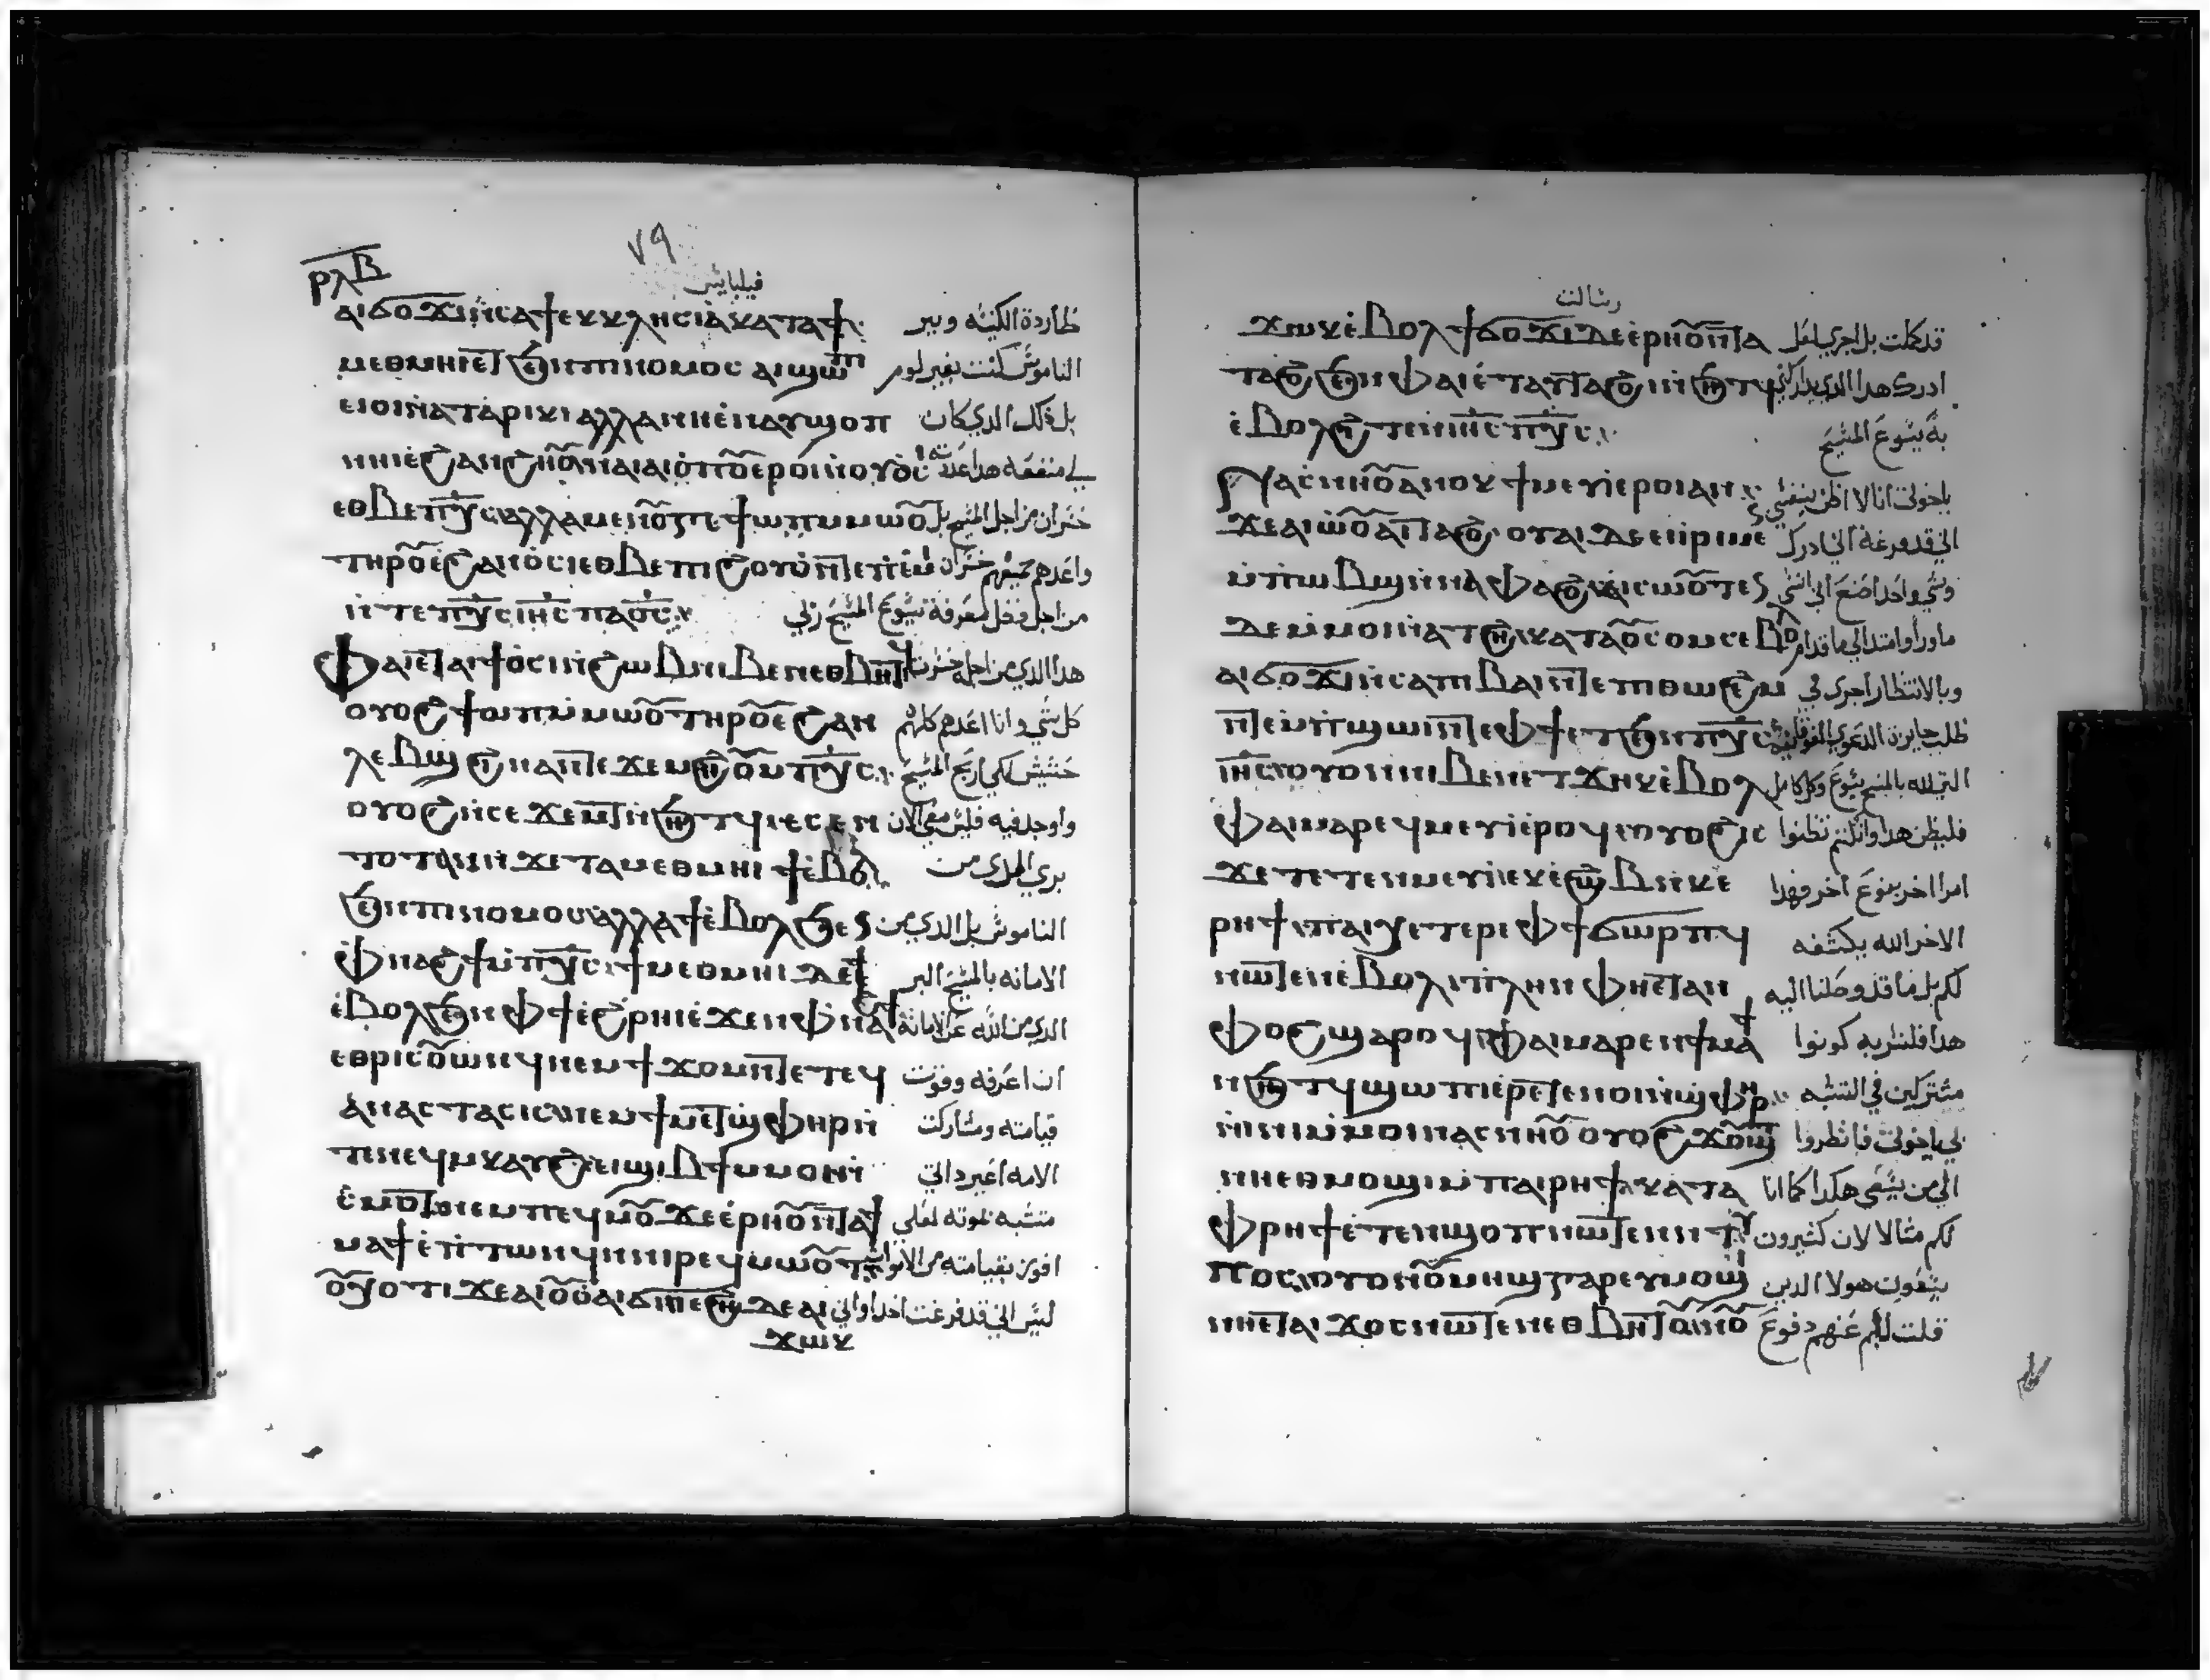 ⲣⲗⲃ
٧٩
فيلبايس
ⲁⲓϭⲟϫⲓ ⲛⲥⲁ ϯⲉⲕⲕⲗⲏⲥⲓⲁ ⲕⲁⲧⲁ ϯ طاردة الكنيسه وببر
ⲙⲉⲑⲙⲏⲓ ⲉⲧ ϧⲉⲛ ⲡⲓⲛⲟⲙⲟⲥ ⲁⲓϣⲱⲡ الناموس كنت بغير لوم
ⲉⲓⲟⲓ ⲛⲁⲧⲁⲣⲓⲕⲓ ⲁⲗⲗⲁ ⲛⲏ ⲉⲛⲁⲩϣⲟⲡ بل ذلك الدي كان
ⲛⲏⲓ ⲉϩⲁⲛϩⲏⲟⲩ ⲛⲁⲓ ⲁⲓⲟⲡⲟⲩ ⲉⲣⲟⲓ ⲛⲟⲩⲟⲥⲓ لي منفعه هدا عددته
ⲉⲑⲃⲉ ⲡⲭⲥ ⲁⲗⲗⲁ ⲙⲉⲛⲟⲩⲛⲅⲉ ϯⲱⲡ ⲙⲙⲱⲟⲩ خسران من اجل المسيح بل
ⲧⲏⲣⲟⲩ ⲉϩⲁⲛⲟⲥⲓ ⲉⲑⲃⲉ ⲡⲓϩⲟⲩⲟ ⲛⲧⲉ ⲡⲉⲙⲓ واعدهم جميعهم خسران
ⲛⲧⲉ ⲡⲭⲥ ⲓⲏⲥ ⲡⲁⲟⲥ من اجل فضل معرفة يسوع المسيح ربي
ⲫⲁⲓ ⲉⲧⲁⲓϯⲟⲥⲓ ⲛϩⲱⲃ ⲛⲓⲃⲉⲛ ⲉⲑⲃⲏⲧϥ هدا الدي من اجله خسرت
ⲟⲩⲟϩ ϯⲱⲡ ⲙⲙⲱⲟⲩ ⲧⲏⲣⲟⲩ ⲉϩⲁⲛ كل شي وانا اعدهم كلهم
ⲗⲉⲃϣ ϩⲓⲛⲁ ⲛⲧⲉ ϫⲉⲙϩⲏⲟⲩ ⲙⲡⲭⲥ حشيش لكي اربح المسيح
ⲟⲩⲟϩ ⲛⲥⲉϫⲉⲙⲧ ⲛϧⲏⲧϥ واوجد فيه فليس معي الان
ⲧⲟⲧ ⲁⲛ ⲛϫⲉ ⲧⲁⲙⲉⲑⲙⲏⲓ ϯⲉⲃⲟⲗ بري الدي من
ϧⲉⲛ ⲡⲓⲛⲟⲙⲟⲥ ⲁⲗⲗⲁ ϯⲉⲃⲟⲗ ϧⲉⲛ الناموس بل الدي من
ⲫⲛⲁϩϯ ⲙⲡⲭⲥ ϯⲙⲉⲑⲙⲏⲓ ⲇⲉ الامانه بالمسيح البر
ⲉⲃⲟⲗ ϧⲉⲛ ⲫϯ ⲉϩⲣⲏⲓ ⲉϫⲉⲛ ⲫⲛⲁϩϯ الدي من الله عن الامانة
ⲉⲑⲣⲓⲥⲟⲩⲱⲛϥ ⲛⲉⲙ ϯϫⲟⲙ ⲛⲧⲉ ⲧⲉϥ ان اعرفه وقوت
ⲁⲛⲁⲥⲧⲁⲥⲓⲥ ⲛⲉⲙ ϯⲙⲉⲧϣⲫⲏⲣ ⲛ قيامته ومشاركت
ϣⲓⲃϯ ⲙⲙⲟⲛⲓ الامه
ⲛⲉⲙ ⲡⲉϥⲙⲟⲩ ϫⲉ ⲉⲣⲏⲟⲩ ⲛⲧⲁ متشبه بموته لعلي
ⲙⲁϯ ⲉⲡⲧⲱⲛϥ ⲛⲛⲓⲣⲉϥⲙⲱⲟⲩⲧ افوز بقيامته من الاموات
ⲟⲩⲭ ⲟⲧⲓ ϫⲉ ⲁⲓⲟⲩⲱ ليس اني قد فرغت
ϫⲱⲕ
رسالت
ϫⲱⲕ ⲉⲃⲟⲗ ϯϭⲟϫⲓ ⲇⲉ ⲉⲣⲏⲟⲩ ⲛⲧⲁ قد كملت بل اجري لعل
ⲧⲁϩⲟ ϧⲉⲛ ⲫⲁⲓ ⲉⲧⲁⲩⲧⲁϩⲟⲓ ⲛϧⲏⲧϥ ادرك هدا الدي
ⲉⲃⲟⲗ ϩⲓⲧⲉⲛ ⲓⲏⲥ ⲡⲭⲥ به يسوع المسيح
ⲛⲁⲥⲛⲏⲟⲩ ⲁⲛⲟⲕ ϯⲙⲉⲩⲓ ⲉⲣⲟⲓ ⲁⲛ ياخوتي انا لا اظن بنفسي
ϫⲉ ⲁⲓⲟⲩⲱ ⲁⲓⲧⲁϩⲟ ⲟⲩⲁⲓ ⲇⲉ ⲉⲧⲓⲣⲓ ⲙⲙⲟϥ اني قد فرغة
ⲛⲁ ⲫⲁϩⲟⲩ ⲙⲉⲛ وشي واحدا اصنع اني انسى
ⲇⲉ ⲙⲙⲟⲓ ⲛⲁⲧϩⲏ ⲕⲁⲧⲁ ⲟⲩⲥⲟⲙⲥ ⲉⲃⲟⲗ ماورا وامتد الي ما قدام
ⲁⲓϭⲟϫⲓ ⲛⲥⲁ ⲡⲓⲃⲁⲓ ⲛⲧⲉ ⲡⲓⲑⲱϩⲉⲙ وبالانتظار اجري في
ⲛⲧⲉ ⲡϣⲱⲓ ⲛⲧⲉ ⲫϯ ϧⲉⲛ ⲡⲭⲥ طلب جايزة الدعوي
ⲓⲏⲥ ⲟⲩⲟⲛ ⲛⲓⲃⲉⲛ ⲉⲧϫⲏⲕ ⲉⲃⲟⲗ التي لله بالمسيح يسوع وكل كامل
ⲫⲁⲓ ⲙⲁⲣⲉϥⲙⲉⲩⲓ ⲉⲣⲟϥ ⲟⲩⲟϩ ⲓⲥ فليظن هدا وانكنتم تظنوا
ϫⲉ ⲧⲉⲧⲉⲛⲙⲉⲩⲓ ⲉⲕⲉϩⲱⲃ ⲛⲕⲉ امرا اخر بنوع اخر فهدا
ⲣⲏϯ ⲡⲁⲓⲭⲉⲧ ⲉⲣⲉ ⲫϯ ϭⲱⲣⲡϥ الاخر الله يكشفه
ⲛⲱⲧⲉⲛ ⲉⲃⲟⲗ ⲡⲗⲏⲛ ⲫⲏ ⲉⲧⲁⲛ لكم بل ما قد وصلنا اليه
ⲫⲟϩ ϣⲁⲣⲟϥ ⲫⲁⲓ ⲙⲁⲣⲉⲛϯⲙⲁϯ هدا فلنسر به كونوا
ⲛϧⲏⲧϥ ϣⲱⲡⲓ ⲉⲣⲉⲧⲉⲛⲟⲓ ⲛϣⲫⲏⲣ مشتركين في التشبه
ⲙⲙⲟⲓ ⲛⲁⲥⲛⲏⲟⲩ ⲟⲩⲟϩ ϫⲟⲩϣⲧ بي ياخوتي فانظروا
ⲛⲏ ⲉⲑⲙⲟϣⲓ ⲙⲡⲁⲓⲣⲏϯ ⲕⲁⲧⲁ الي من يسعى هكدا كما انا
ⲫⲣⲏϯ ⲉⲧⲉⲛϣⲟⲡ ⲛⲱⲧⲉⲛ ⲛⲧⲩ لكم مثالا لان كثيرون
ⲡⲟⲥ ⲟⲩⲟⲛ ⲟⲩⲙⲏϣ ⲅⲁⲣ ⲉⲩⲙⲟϣⲓ يسعون هولا الدين
ⲛⲏ ⲉⲧⲁⲓϫⲟⲥ ⲛⲱⲧⲉⲛ ⲉⲑⲃⲏⲧⲟⲩ قلت لكم عنهم دفوع